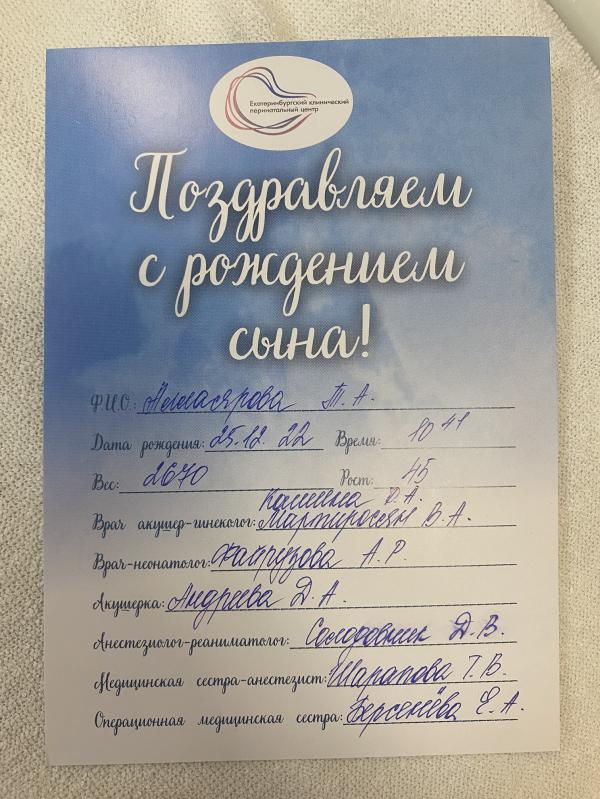 Екатеринбургский клинический
перинатальный центр
Поздравляем
с рождением
сына!
Ф.И.О.: Аллаярова Т. А.
Дата рождения: 25.12.22 Время: 10 41
Вес: 2670 Рост: 45
Д.А.
Врач акушер-гинеколог: Мартиросян В. А.
Врач-неонатолог: Файрузова А. Р.
Акушерка: Андреева Д. А.
Анестезиолог-реаниматолог: Солодовник Д. В.
Медицинская сестра-анестезист: Шарапова Т. В.
Операционная медицинская сестра: Берсенёва Е. А.